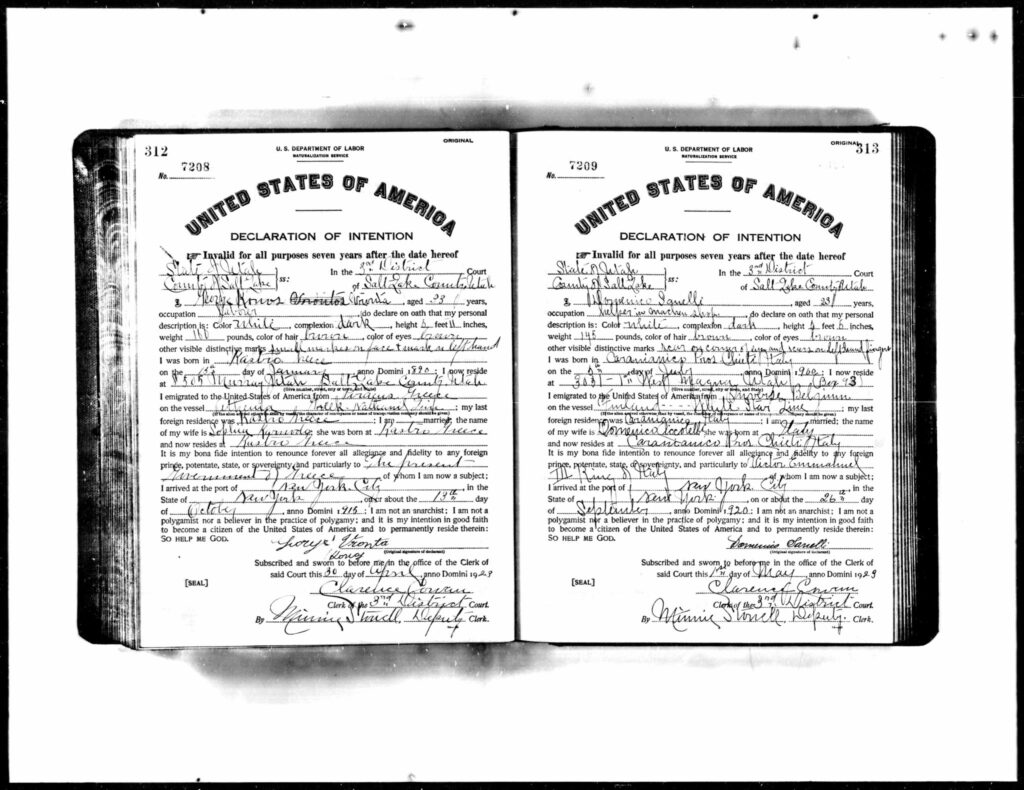 312
ORIGINAL
U. S. DEPARTMENT OF LABOR
NATURALIZATION SERVICE
No. 7208
UNITED STATES OF AMERICA
DECLARATION OF INTENTION
Invalid for all purposes seven years after the date hereof
State of Utah
In the 3rd District Court
County of Salt Lake ss: of Salt Lake County, Utah
I, George aged 33 years,
occupation Labour, do declare on oath that my personal
description is: Color white, complexion dark, height feet 11 inches,
weight pounds, color of hair brown, color of eyes brown
other visible distinctive marks on face & mark on left hand
I was born in Kastro Greece
on the day of January, anno Domini 1890; I now reside
at Murray Utah Salt Lake County Utah
(Give number, street, city or town, and State)
I emigrated to the United States of America from Greece
on the vessel ; my last
foreign residence was Kastro Greece; I am married; the name
of my wife is Sophia; she was born at Kastro Greece
and now resides at Kastro Greece
It is my bona fide intention to renounce forever all allegiance and fidelity to any foreign
prince, potentate, state, or sovereignty, and particularly to The present
Government of Greece, of whom I am now a subject;
I arrived at the port of New York City, in the
State of New York, on or about the 13th day
of October, anno Domini 1915; I am not an anarchist; I am not a
polygamist nor a believer in the practice of polygamy; and it is my intention in good faith
to become a citizen of the United States of America and to permanently reside therein:
SO HELP ME GOD.
George Vronta
(Original signature of declarant)
Subscribed and sworn to before me in the office of the Clerk of
said Court this 30 day of April, anno Domini 1923
[SEAL]
Clarence Cowan
Clerk of the 3rd District Court.
By Minnie Storell, Deputy Clerk.
ORIGINAL
313
U. S. DEPARTMENT OF LABOR
NATURALIZATION SERVICE
No. 7209
UNITED STATES OF AMERICA
DECLARATION OF INTENTION
Invalid for all purposes seven years after the date hereof
State of Utah
In the 3rd District Court
County of Salt Lake ss: of Salt Lake County Utah
I, Domenico Sanelli, aged 23 years,
occupation Helper in machine shop, do declare on oath that my personal
description is: Color white, complexion dark, height 5 feet inches,
weight 145 pounds, color of hair brown, color of eyes brown
other visible distinctive marks scar on left hand finger
I was born in Caramanico Prov Chieti Italy
on the day of July, anno Domini 1900; I now reside
at West Magna Utah (Box 43)
(Give number, street, city or town, and State)
I emigrated to the United States of America from Belgium
on the vessel Finland White Star Line; my last
foreign residence was Caramanico Italy; I am married; the name
of my wife is Domenica; she was born at Italy
and now resides at Caramanico Prov Chieti Italy
It is my bona fide intention to renounce forever all allegiance and fidelity to any foreign
prince, potentate, state, or sovereignty, and particularly to Victor Emmanuel
III King of Italy, of whom I am now a subject;
I arrived at the port of New York City, in the
State of New York, on or about the 26th day
of September, anno Domini 1920; I am not an anarchist; I am not a
polygamist nor a believer in the practice of polygamy; and it is my intention in good faith
to become a citizen of the United States of America and to permanently reside therein:
SO HELP ME GOD.
Domenico Sanelli
(Original signature of declarant)
Subscribed and sworn to before me in the office of the Clerk of
said Court this 1st day of May, anno Domini 1923
[SEAL]
Clarence Cowan
Clerk of the 3rd District Court.
By Minnie Storell, Deputy Clerk.